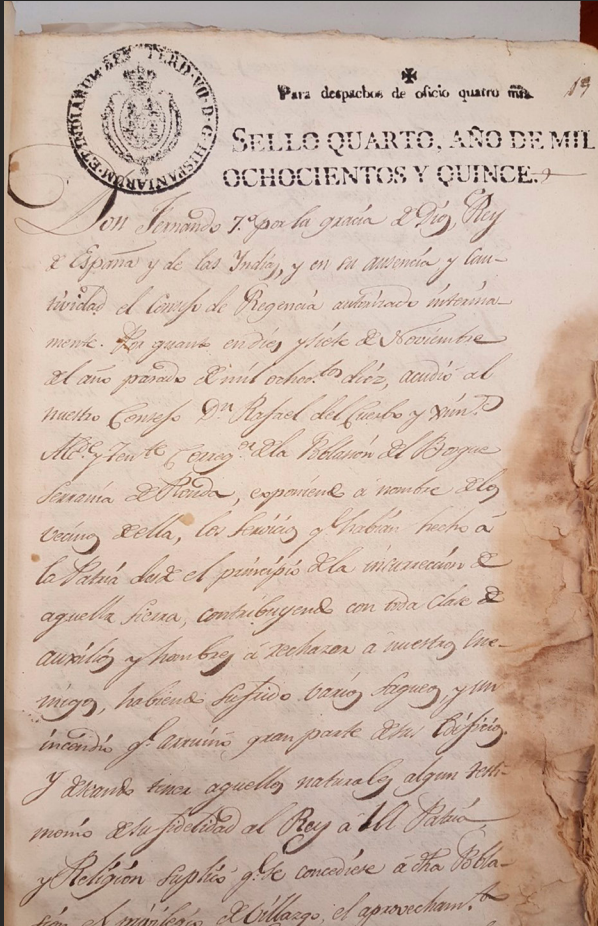 FERD·VII·D·G·HISPANIARUM·ET INDIARUM·REX
Para despachos de oficio quatro mrs.
19
SELLO QUARTO, AÑO DE MIL
OCHOCIENTOS Y QUINCE.
Don Fernando 7.º por la gracia de Dios, Rey
de España y de las Indias, y en su ausencia y cau-
tividad el Consejo de Regencia autorizado interina
mente. Por quanto en diez y siete de Noviembre
del año pasado de mil ochoc.tos diez, acudió al
nuestro Consejo Dn Rafael del Cuerbo y
Alc.e y Ten.te Correg.or de la Poblacion del Borgue
Serranía de Ronda, exponiendo á nombre de los
vecinos de ella, los servicios q.e habian hecho á
la Patria desde el principio de la insurreccion de
aquella Sierra, contribuyendo con toda clase de
auxilios y hombres á rechazar á nuestros ene-
migos, habiendo sufrido varios saqueos, y un
incendio q.e arruinó gran parte de sus edificios.
Y deseando tener aquellos naturales algun testi-
monio de su fidelidad al Rey á la Patria
y Religion suplicó q.e se concediese á dha Pobla-
cion el privilegio de Villazgo, el aprovecham.to